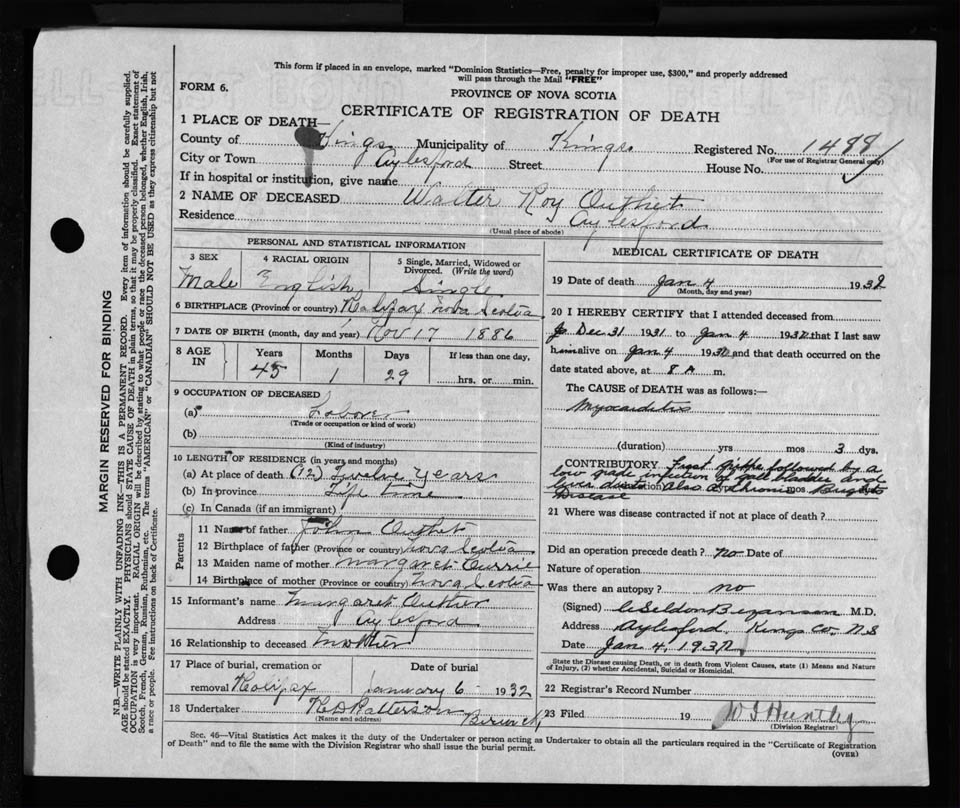 This form if placed in an envelope, marked "Dominion Statistics—Free, penalty for improper use, $300," and properly addressed
will pass through the Mail "FREE"
FORM 6.
PROVINCE OF NOVA SCOTIA
CERTIFICATE OF REGISTRATION OF DEATH
1 PLACE OF DEATH—
County of Kings Municipality of Kings Registered No. 1488
(For use of Registrar General only)
City or Town Aylesford Street House No.
If in hospital or institution, give name
2 NAME OF DECEASED Walter Roy Outhet
Residence Aylesford
(Usual place of abode)
PERSONAL AND STATISTICAL INFORMATION
3 SEX 4 RACIAL ORIGIN 5 Single, Married, Widowed or Divorced. (Write the word)
Male English Single
6 BIRTHPLACE (Province or country) Halifax Nova Scotia
7 DATE OF BIRTH (month, day and year) Nov 17 1886
8 AGE IN Years Months Days If less than one day,
45 1 29 hrs. or min.
9 OCCUPATION OF DECEASED
(a) Labover
(Trade or occupation or kind of work)
(b)
(Kind of industry)
10 LENGTH OF RESIDENCE (in years and months)
(a) At place of death (12) Twelve Years
(b) In province Life time
(c) In Canada (if an immigrant)
Parents
11 Name of father John Outhet
12 Birthplace of father (Province or country) Nova Scotia
13 Maiden name of mother Margaret Currie
14 Birthplace of mother (Province or country) Nova Scotia
15 Informant's name Margaret Outhet
Address Aylesford
16 Relationship to deceased Mother
17 Place of burial, cremation or Date of burial
removal Halifax January 6 1932
18 Undertaker Patterson Berwick
(Name and address)
MEDICAL CERTIFICATE OF DEATH
19 Date of death Jan 4 1932
(Month, day and year)
20 I HEREBY CERTIFY that I attended deceased from
Dec 31 1931 to Jan 4 1932 that I last saw
him alive on Jan 4 1932 and that death occurred on
the date stated above, at 8 A m.
The CAUSE of DEATH was as follows:—
Myocarditis
(duration) yrs mos 3 dys.
CONTRIBUTORY First Grippe followed by a
low grade infection of gall bladder and
liver ducts (duration) also a chronic mos Brights
Disease
21 Where was disease contracted if not at place of death?
Did an operation precede death? no Date of
Nature of operation
Was there an autopsy? no
(Signed) Seldon Bezanson M.D.
Address Aylesford, Kings Co, N.S
Date Jan 4, 1932
State the Disease causing Death, or in death from Violent Causes, state (1) Means and Nature
of Injury, (2) whether Accidental, Suicidal or Homicidal.
22 Registrar's Record Number
23 Filed 19 Huntley
(Division Registrar)
Sec. 46—Vital Statistics Act makes it the duty of the Undertaker or person acting as Undertaker to obtain all the particulars required in the "Certificate of Registration
of Death" and to file the same with the Division Registrar who shall issue the burial permit.
(OVER)
MARGIN RESERVED FOR BINDING
N.B.—WRITE PLAINLY WITH UNFADING INK—THIS IS A PERMANENT RECORD. Every item of information should be carefully supplied.
AGE should be stated EXACTLY. PHYSICIANS should STATE CAUSE OF DEATH in plain terms, so that it may be properly classified. Exact statement of
OCCUPATION is very important. RACIAL ORIGIN will be described by stating to what people or race the deceased person belonged, whether English, Irish,
Scotch, French, German, Russian, Ruthenian, etc. The terms "AMERICAN" or "CANADIAN" SHOULD NOT BE USED as they express citizenship but not
a race or people. See instructions on back of Certificate.